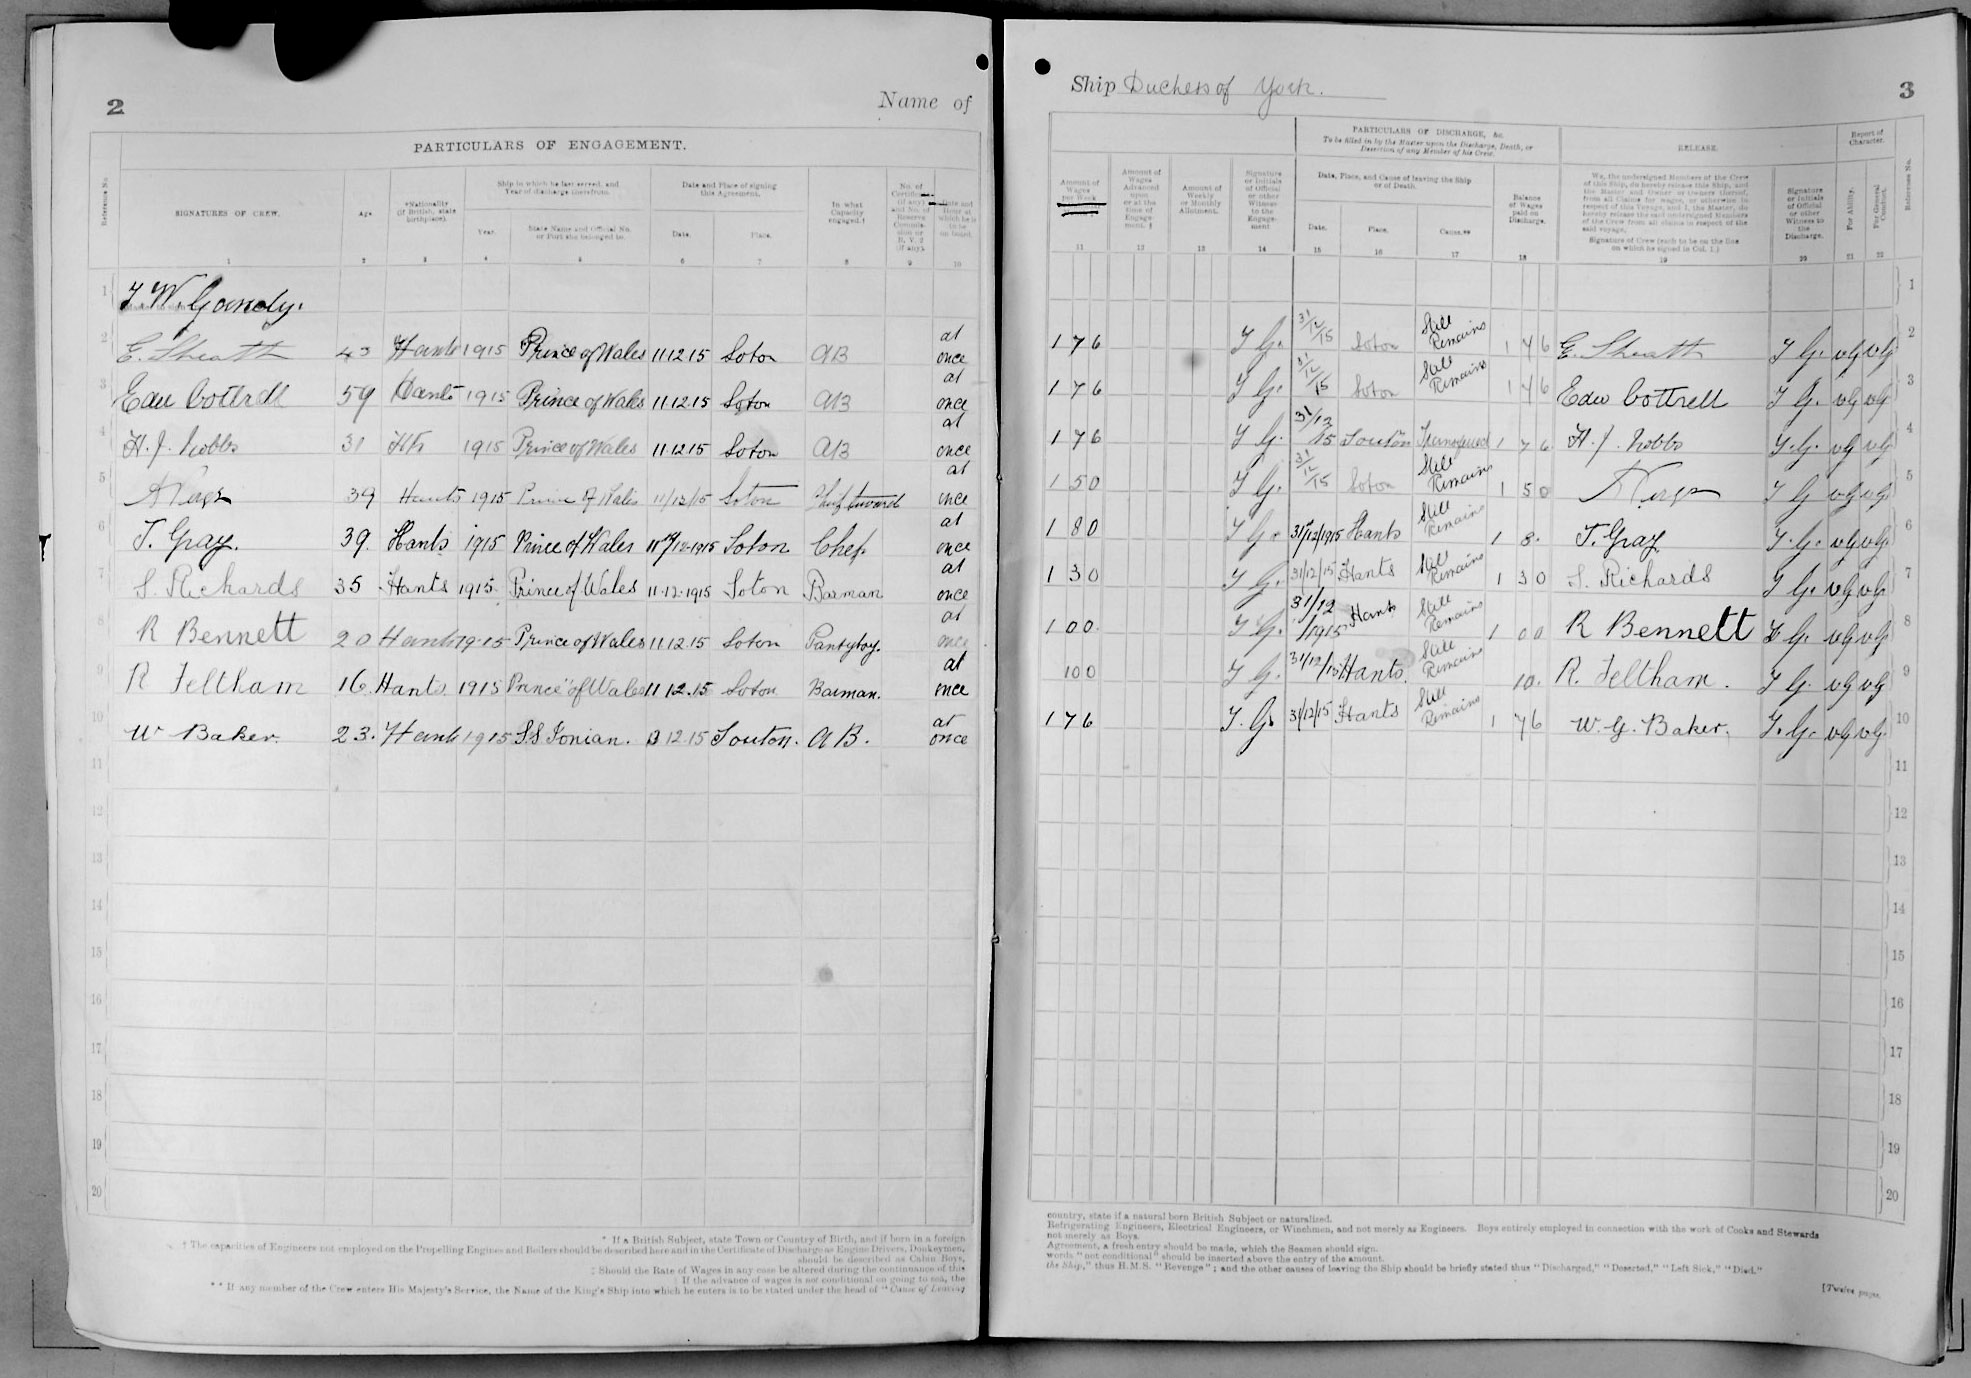 2
Name of
PARTICULARS OF ENGAGEMENT.
Reference No.
SIGNATURES OF CREW.
Age.
*Nationality (If British, state birthplace).
Ship in which he last served, and Year of discharge therefrom.
Year.
State Name and Official No. or Port she belonged to.
Date and Place of signing this Agreement.
Date.
Place.
In what Capacity engaged.†
No. of Certificate (if any)
1 2 3 4 5 6 7 8 9 10
1 T W. Gandy.
2 E. Sheath 43 Hants 1915 Prince of Wales 11.12.15 Soton AB at once
3 Edw Cottrell 59 Hants 1915 Prince of Wales 11.12.15 Soton AB at once
4 H. J. Nobbs 31 Hts 1915 Prince of Wales 11.12.15 Soton AB at once
5 39 Hants 1915 Prince of Wales 11/12/15 Soton at once
6 T. Gray. 39. Hants 1915 Prince of Wales 11th/12.1915 Soton Chef at once
7 S. Richards 35 Hants 1915 Prince of Wales 11.12.1915 Soton Barman at once
8 R Bennett 20 Hants 1915 Prince of Wales 11.12.15 Soton Pantryboy. at once
9 R Feltham 16 Hants. 1915 Prince of Wales 11 12.15 Soton Barman. at once
10 W Baker. 23. Hants 1915 S.S Ionian. 13 12.15 Souton. AB. at once
11
12
13
14
15
16
17
18
19
20
* If a British Subject, state Town or Country of Birth, and if born in a foreign
† The capacities of Engineers not employed on the Propelling Engines and Boilers should be described here and in the Certificate of Discharge as Engine Drivers, Donkeymen,
should be described as Cabin Boys,
‡ Should the Rate of Wages in any case be altered during the continuance of this
If the advance of wages is not conditional on going to sea, the
** If any member of the Crew enters His Majesty's Service, the Name of the King's Ship into which he enters is to be stated under the head of "Cause of Leaving
Ship Duchess of York.
3
PARTICULARS OF DISCHARGE, &c.
To be filled in by the Master upon the Discharge, Death, or Desertion of any Member of his Crew.
RELEASE.
Report of Character.
Amount of Wages per Week
Amount of Wages Advanced upon or at the time of Engagement.‡
Amount of Weekly or Monthly Allotment.
Signature or Initials of Official or other Witness to the Engagement
Date, Place, and Cause of leaving the Ship or of Death.
Date.
Place.
Cause.**
Balance of Wages paid on Discharge.
We, the undersigned Members of the Crew of this Ship, do hereby release this Ship, and the Master and Owner or Owners thereof, from all Claims for wages, or otherwise in respect of this Voyage, and I, the Master, do hereby release the said undersigned Members of the Crew from all claims in respect of the said voyage.
Signature of Crew (each to be on the line on which he signed in Col. 1.)
Signature or Initials of Official or other Witness to the Discharge.
For Ability.
For General Conduct.
Reference No.
11 12 13 14 15 16 17 18 19 20 21 22
1
1 7 6 T G. 31/12/15 Soton Still Remains 1 4 6 E. Sheath T G. vG vG 2
1 7 6 T G. 31/12/15 Soton Still Remains 1 4 6 Edw Cottrell T G. vG vG 3
1 7 6 T G. 31/12/15 Souton Transferred 1 7 6 H. J. Nobbs T.G. vG vG 4
1 5 0 T G. 31/12/15 Soton Still Remains 1 5 0 T G vG vG 5
1 8 0 T G. 31st/12/1915 Hants Still Remains 1 8. T. Gray T.G. vG vG 6
1 3 0 T G. 31/12/15 Hants Still Remains 1 3 0 S. Richards T G. vG vG 7
1 0 0. T G. 31/12/1915 Hants Still Remains 1 0 0 R Bennett T G. vG vG 8
1 0 0 T G. 31/12/15 Hants. Still Remains 10. R. Feltham. T G. vG vG 9
1 7 6 T. G. 31/12/15 Hants Still Remains 1 7 6 W. G. Baker. T. G. vG vG. 10
11
12
13
14
15
16
17
18
19
20
country, state if a natural born British Subject or naturalized.
Refrigerating Engineers, Electrical Engineers, or Winchmen, and not merely as Engineers. Boys entirely employed in connection with the work of Cooks and Stewards
not merely as Boys.
Agreement, a fresh entry should be made, which the Seamen should sign.
words "not conditional" should be inserted above the entry of the amount.
the Ship," thus H.M.S. "Revenge"; and the other causes of leaving the Ship should be briefly stated thus "Discharged," "Deserted," "Left Sick," "Died."
[Twelve pages.